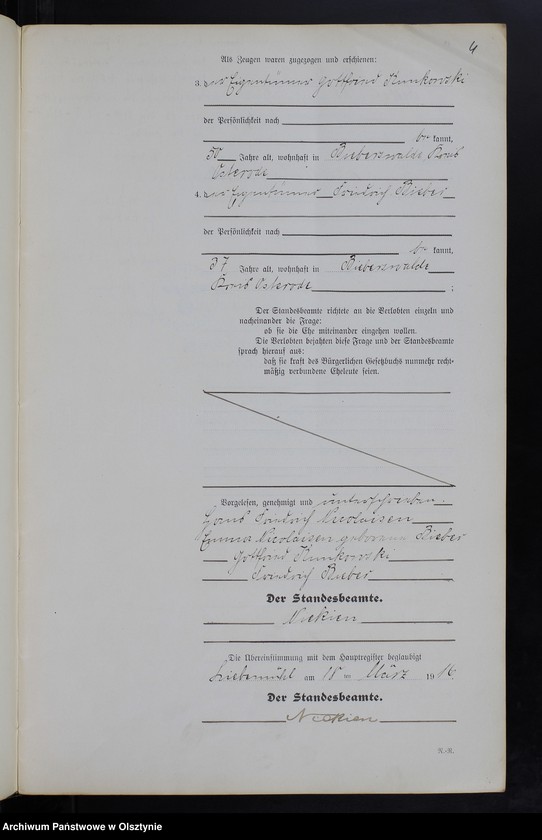 4
Als Zeugen waren zugezogen und erschienen:
3. der Eigentümer Gottfried Kunkowski
der Persönlichkeit nach
be kannt,
50 Jahre alt, wohnhaft in Bieberswalde Kreis
Osterode
4. der Eigentümer Friedrich Bieber
der Persönlichkeit nach
be kannt,
37 Jahre alt, wohnhaft in Bieberswalde
Kreis Osterode ;
Der Standesbeamte richtete an die Verlobten einzeln und
nacheinander die Frage:
ob sie die Ehe miteinander eingehen wollen.
Die Verlobten bejahten diese Frage und der Standesbeamte
sprach hierauf aus:
daß sie kraft des Bürgerlichen Gesetzbuchs nunmehr recht-
mäßig verbundene Eheleute seien.
Vorgelesen, genehmigt und unterschrieben
Hans Friedrich Nicolaisen
Emma Nicolaisen geborene Bieber
Gottfried Kunkowski
Friedrich Bieber
Der Standesbeamte.
Die Übereinstimmung mit dem Hauptregister beglaubigt
Liebemühl am 18 ten März 1916.
Der Standesbeamte.
R.-R.
Archiwum Państwowe w Olsztynie